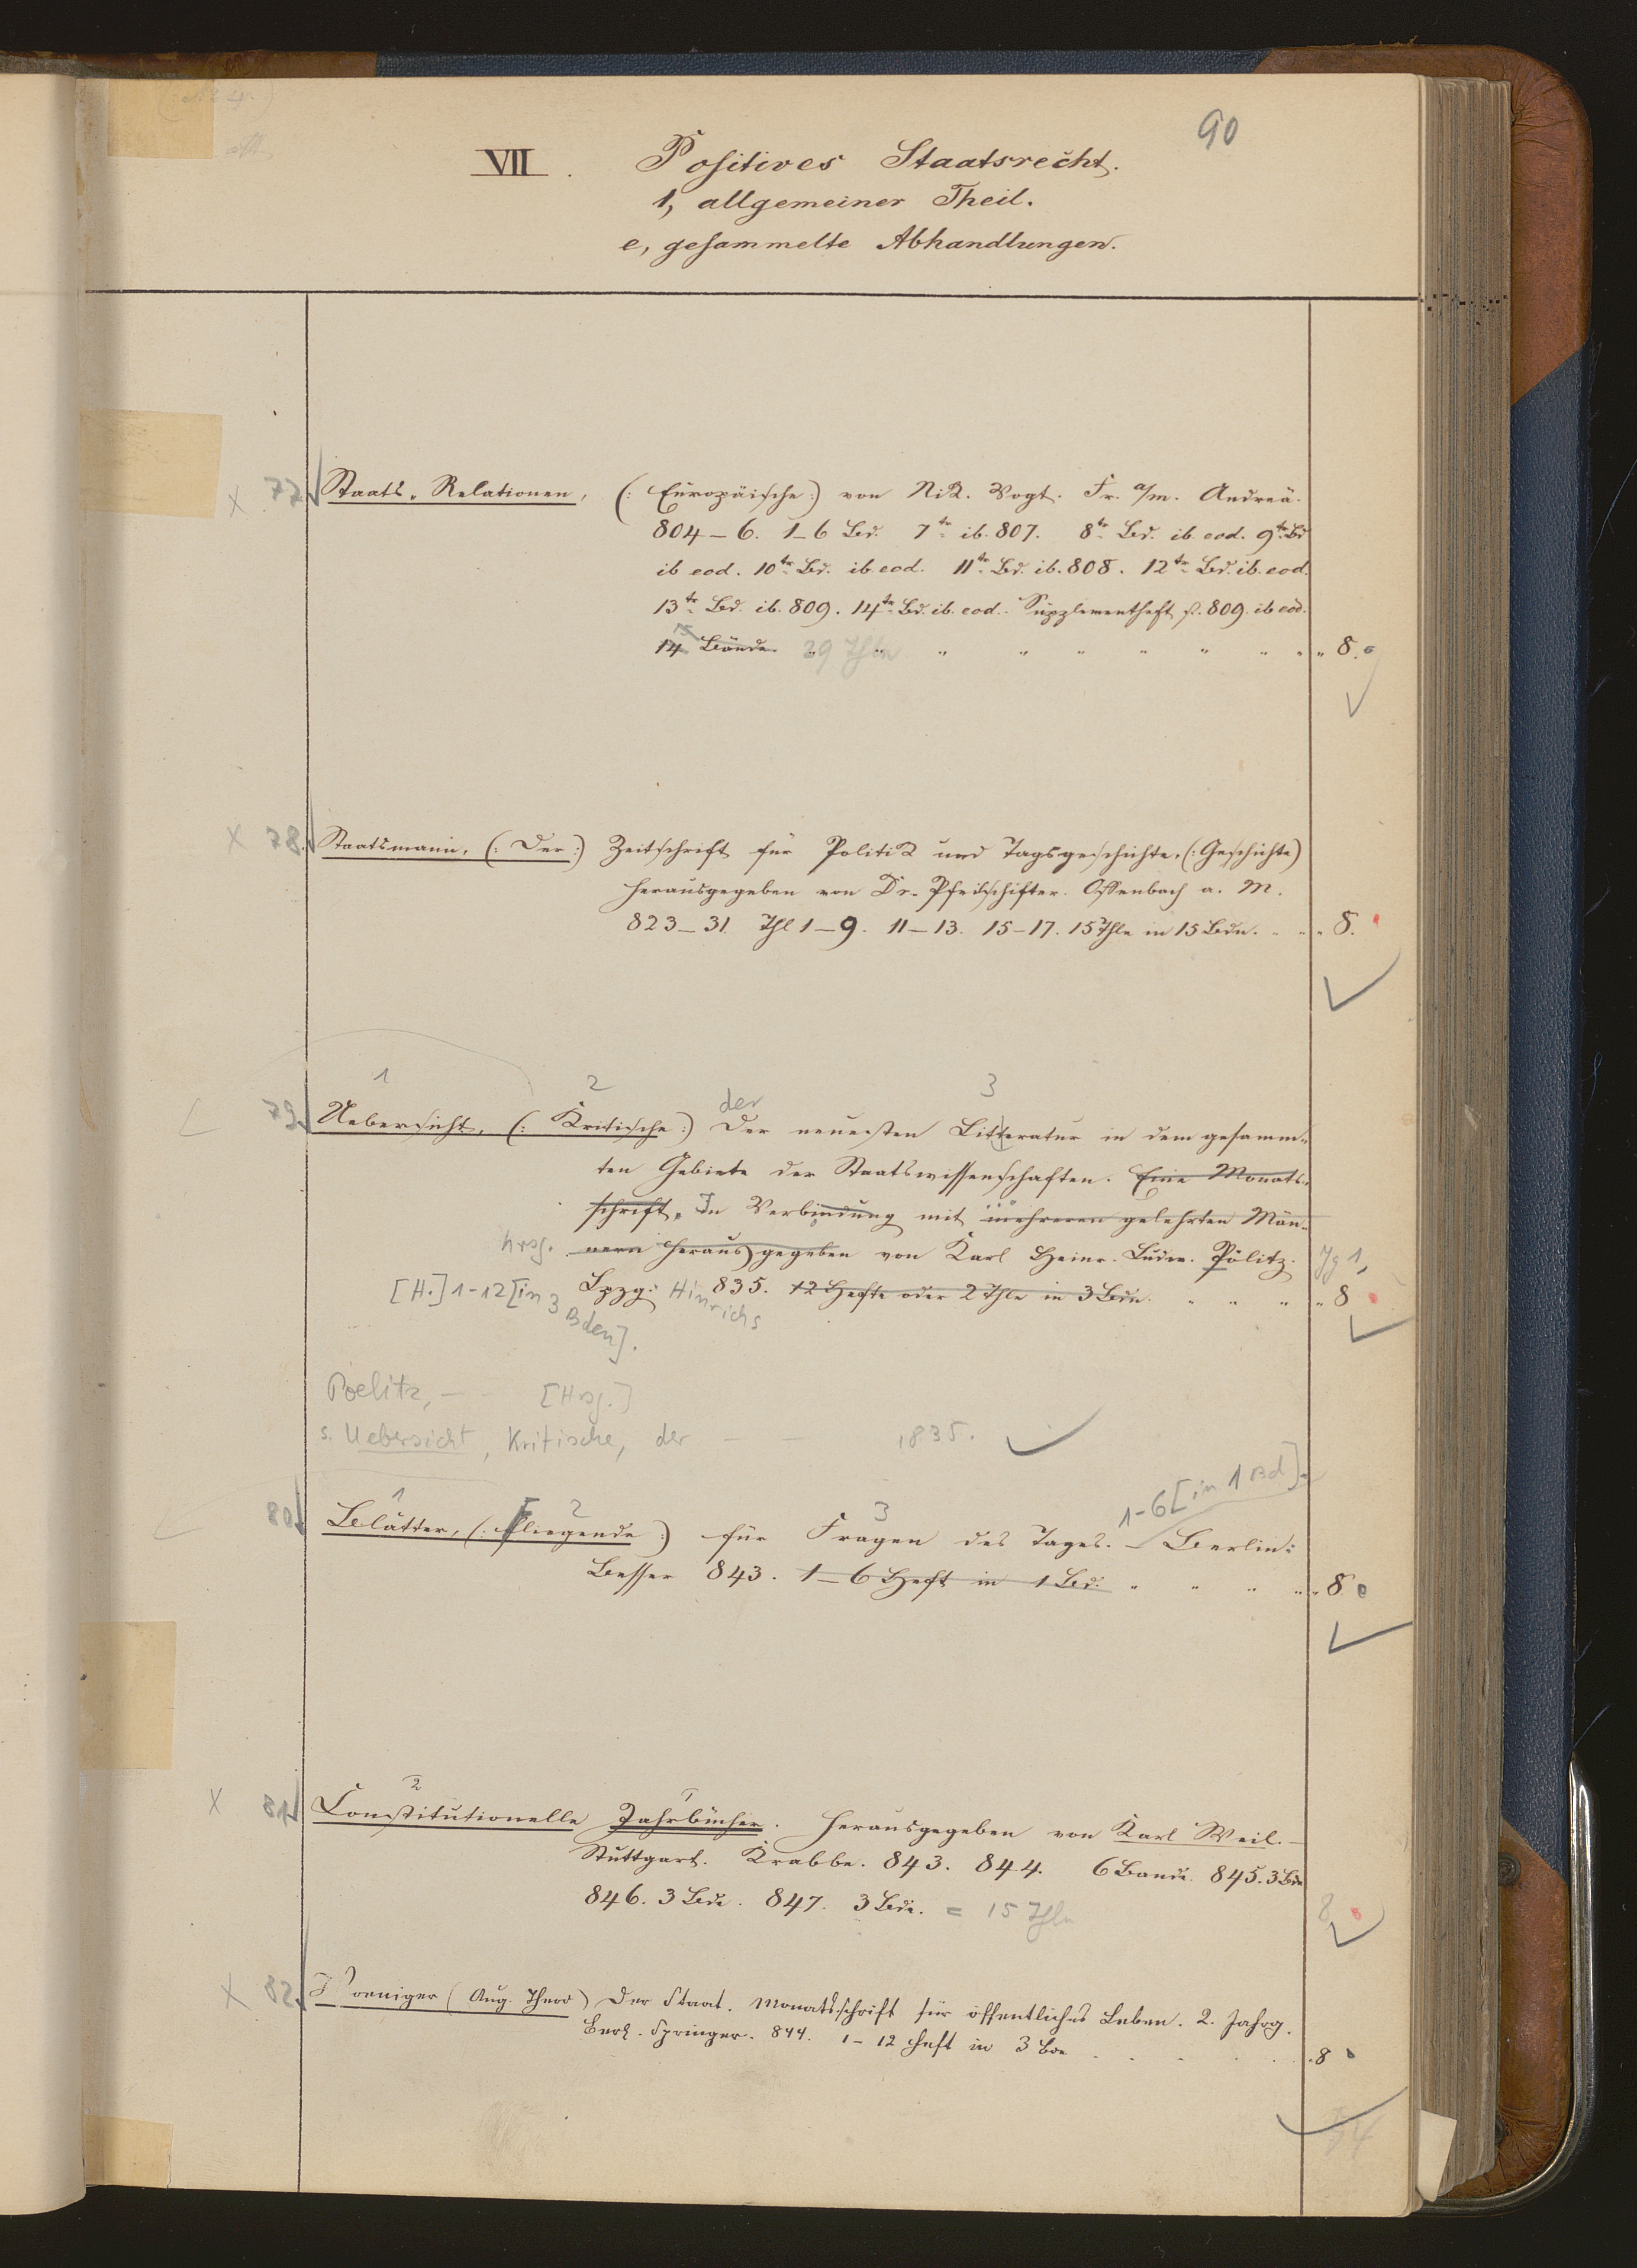 90
VII. Positives Staatsrecht.
1, allgemeiner Theil.
e, gesammelte Abhandlungen.
x 77 Staats-Relationen, (: Europäische :) von Nik. Vogt. Fr. a/m. Andreä.
804–6. 1–6 Bd. 7tr ib. 807. 8tr Bd. ib. eod. 9tr Bd
ib eod. 10tr Bd. ib. eod. 11tr Bd. ib. 808. 12tr Bd. ib. eod.
13tr Bd. ib. 809. 14tr Bd. ib. eod. Supplementheft p. 809. ib eod.
15
14 Bände. 29 Thle " " " " " " " " 8.
x 78. Staatsmann, (: Der :) Zeitschrift für Politik und Tagsgeschichte, (: Geschichte)
herausgegeben von Dr. Pfeilschifter. Offenbach a. M.
823–31. Thl 1–9. 11–13. 15–17. 15 Thle in 15 Bdn. " " " 8.
1 2 der 3
79 Uebersicht, (: Kritische :) Der neuesten Litteratur in dem gesamm-
ten Gebiete der Staatswissenschaften. Eine Monats-
schrift, In Verbindung mit mehreren gelehrten Män-
Hrsg. nern herausgegeben von Karl Heinr. Ludw. Pölitz. Jg 1,
[H.] 1-12 [in 3 Bden]. Lpzg: Hinrichs 835. 12 Hefte oder 2 Thle in 3 Bdn. " " " " 8
Poelitz, – – [Hrsg.]
s. Uebersicht, Kritische, der – – 1835.
1 2 3 1-6 [in 1 Bd].
80 Blätter, (: Fliegende :) für Fragen des Tages. – Berlin:
Besser 843. 1–6 Heft in 1 Bd. " " " " " 8
2 1
x 81 Constitutionelle Jahrbücher. herausgegeben von Karl Weil. –
Stuttgart. Krabbe. 843. 844. 6 Bande. 845. 3 Bde
846. 3 Bde. 847. 3 Bde. = 15 Thle 8
x 82 Woeniger (Aug. Theod) Der Staat. Monatsschrift für öffentliches Leben. 2. Jahrg.
Berl. Springer. 844. 1–12 Heft in 3 Bde . . . . . 8